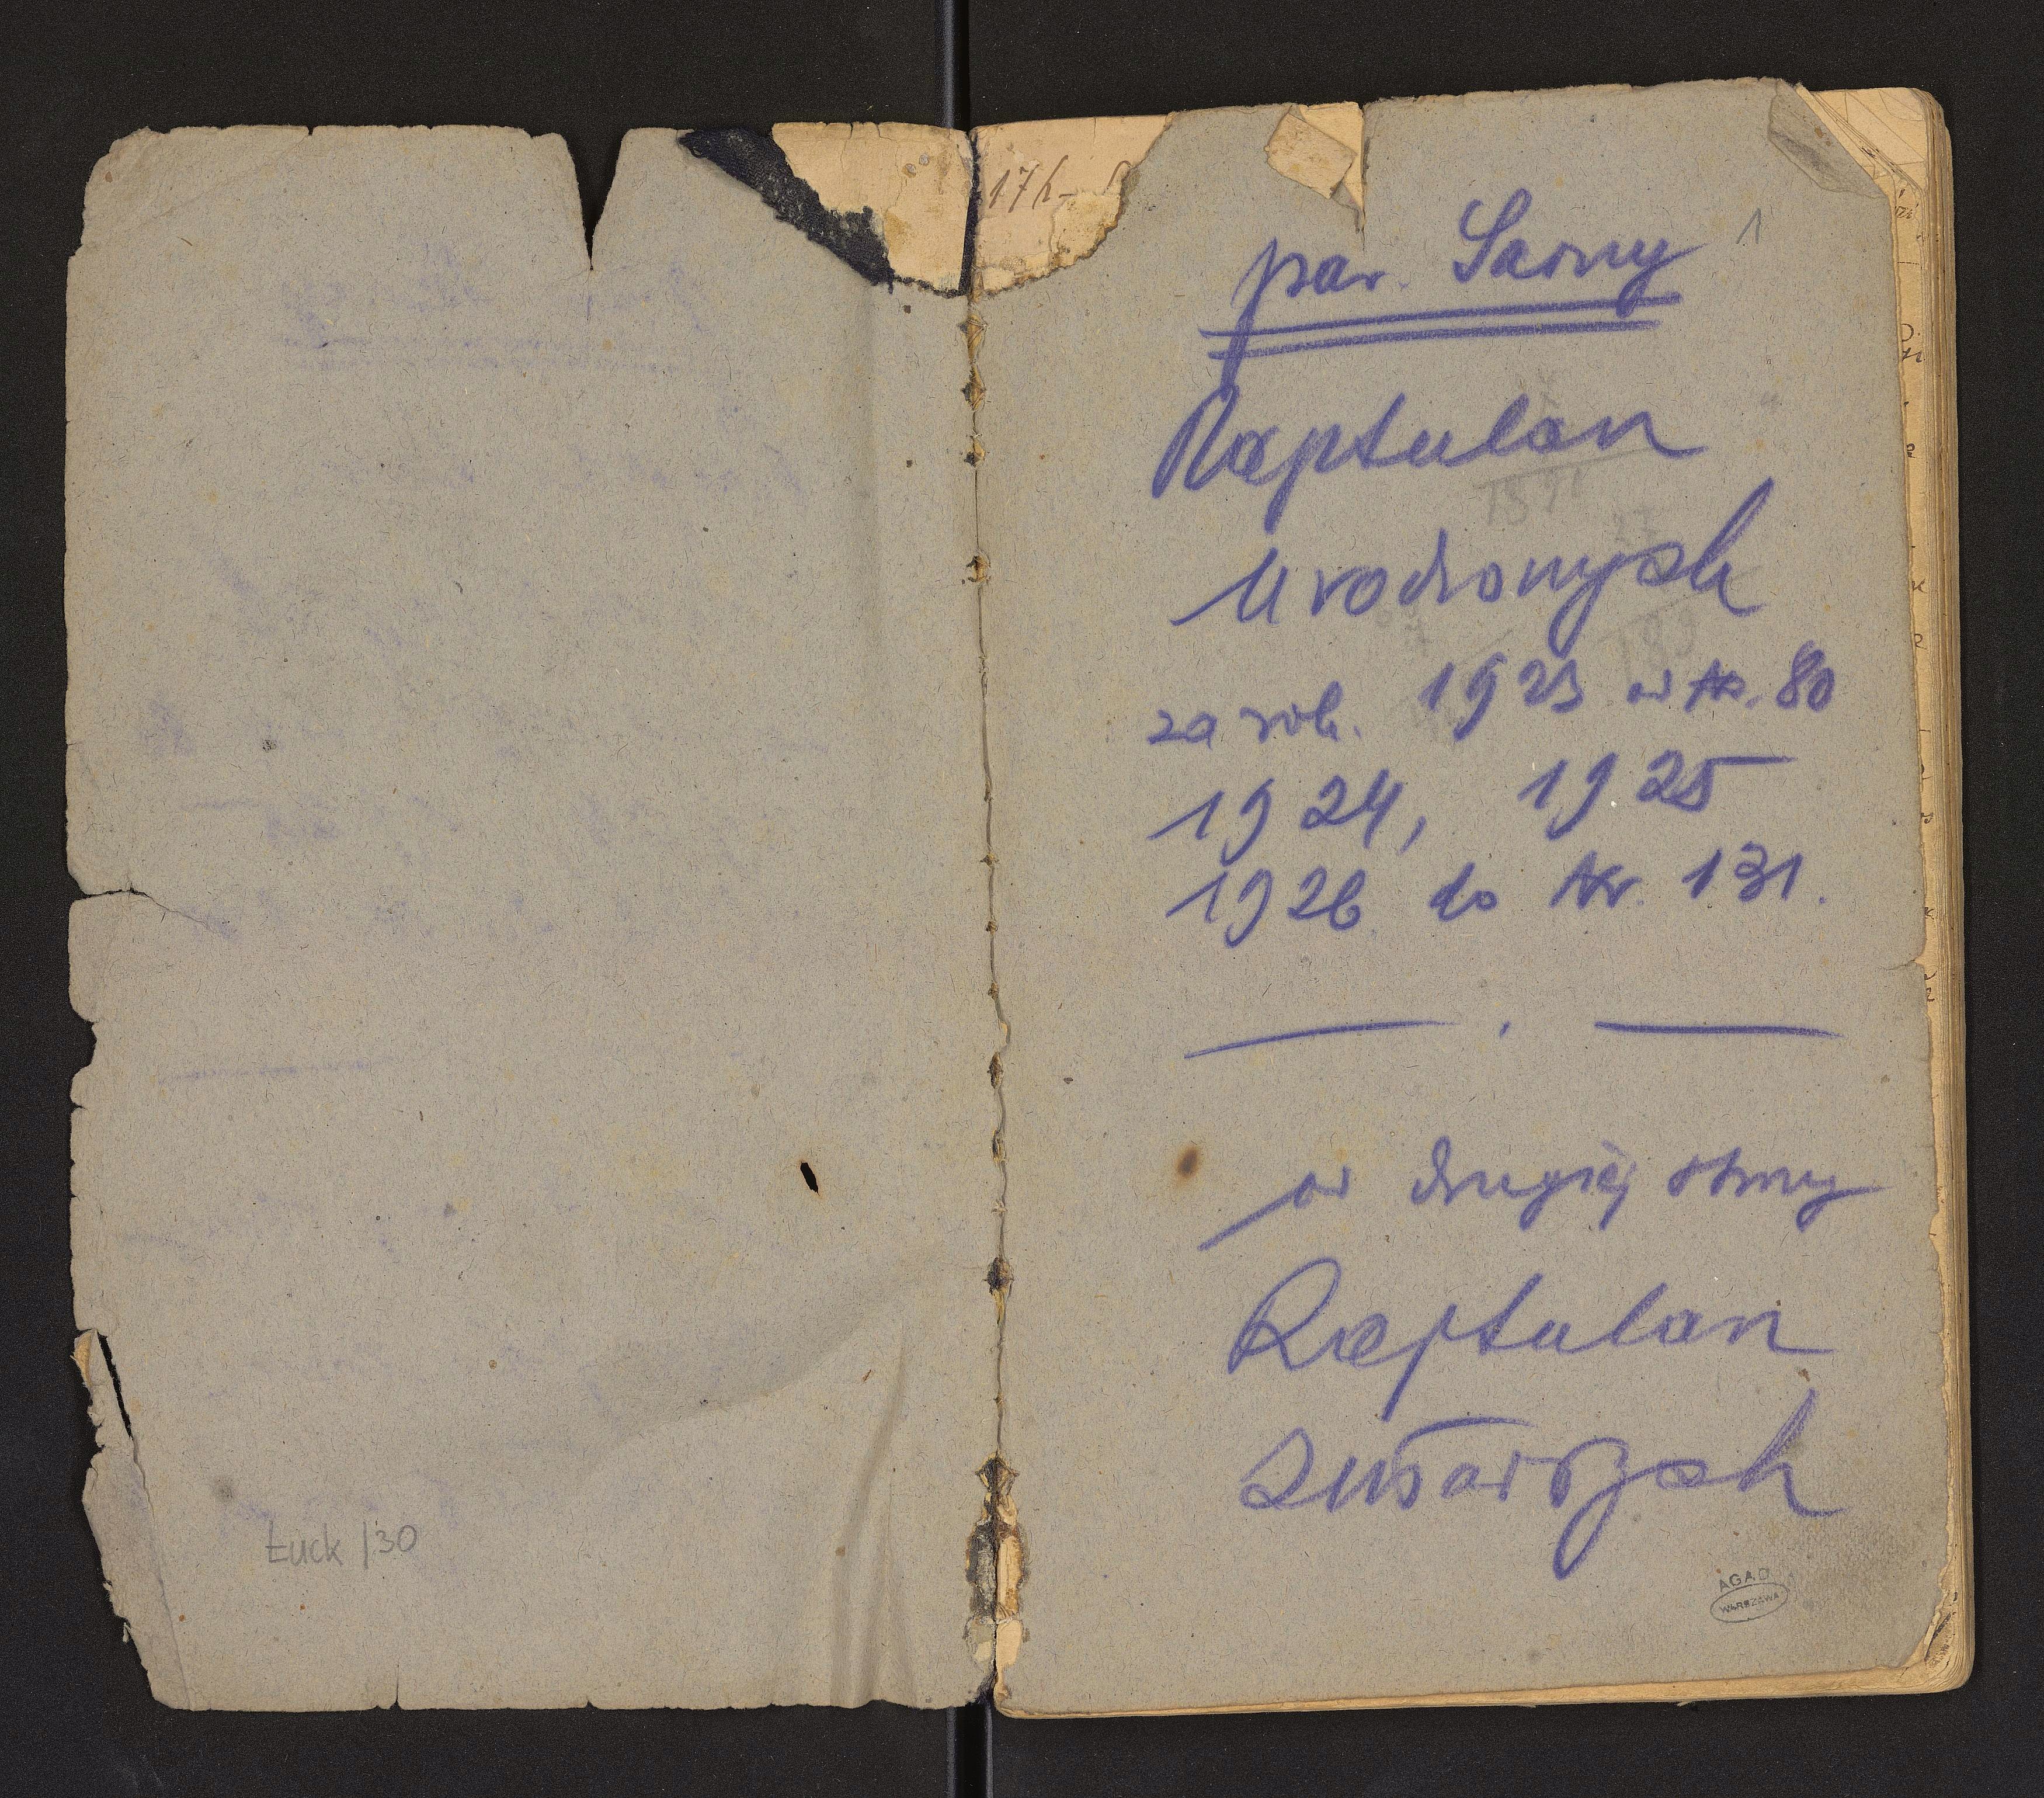 17h-
1
par. Sarny
Raptularz
Urodzonych
za rok. 1923 od Nr. 80
1924, 1925
1926 do Nr. 131.
od drugiej strony
Raptularz
Zmarłych
Łuck /30
AGAD
WARSZAWA